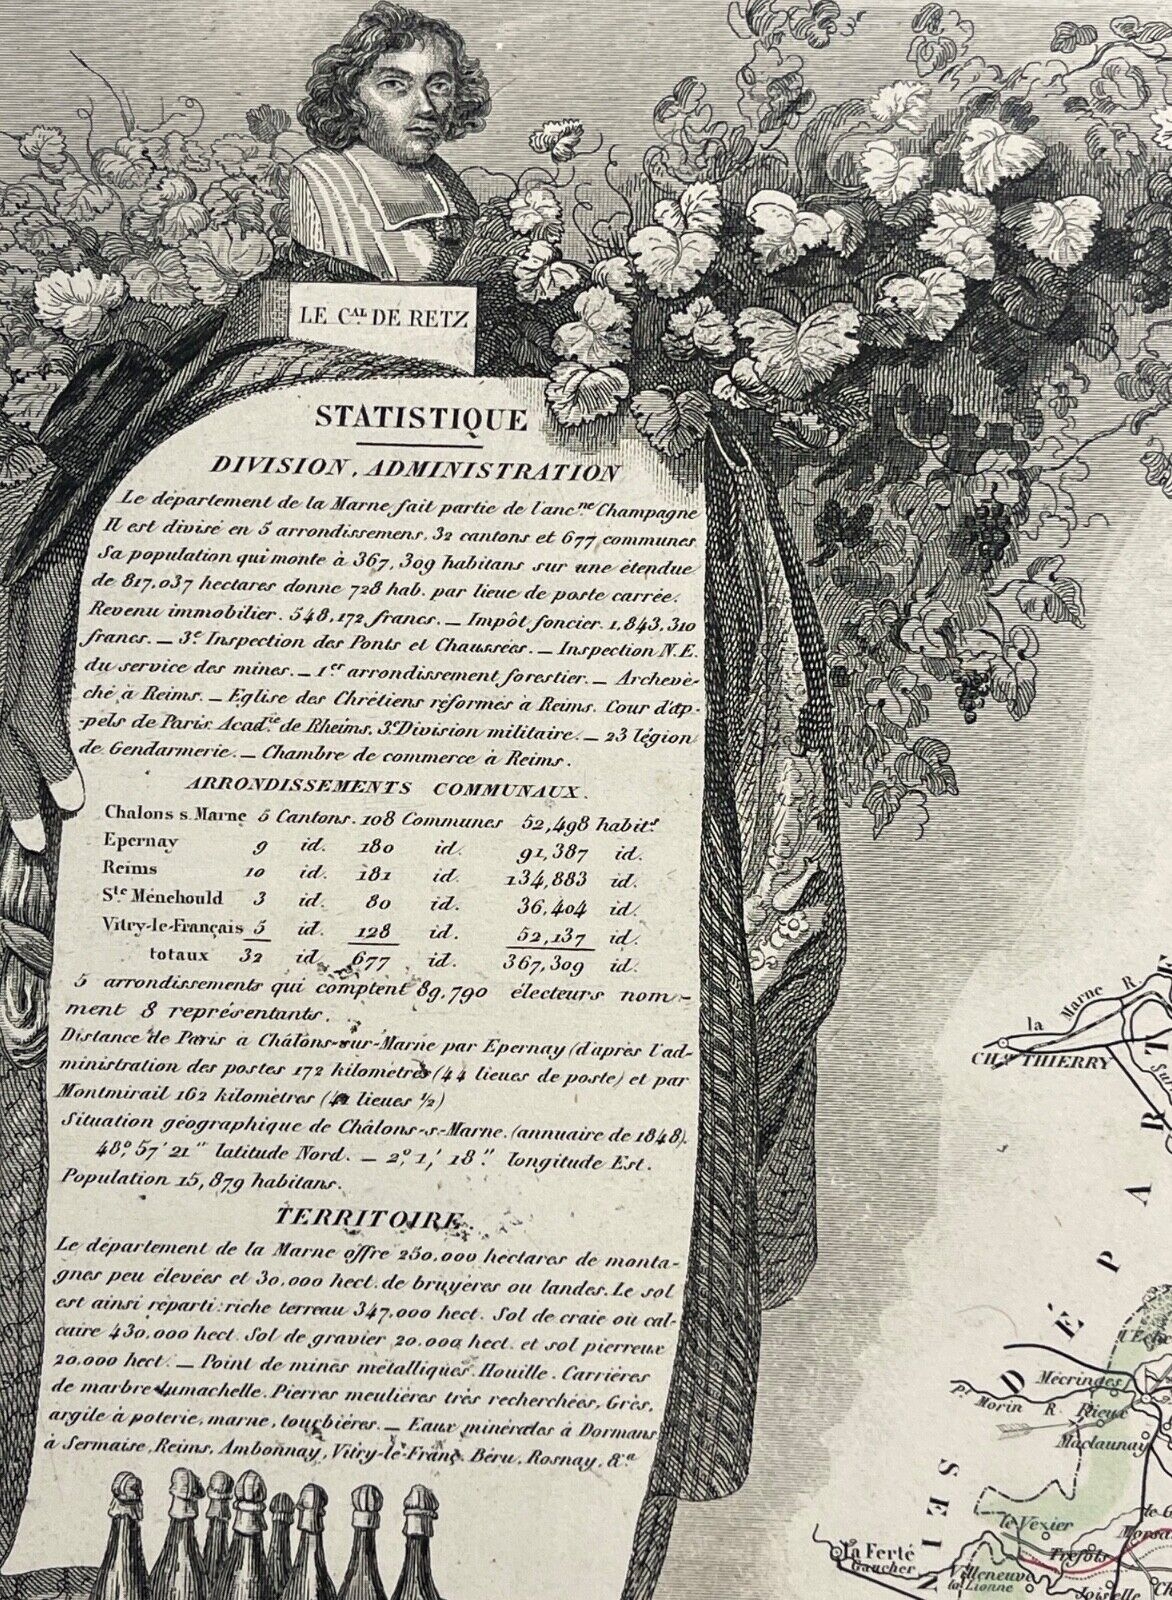 LE C.AL DE RETZ
STATISTIQUE
DIVISION, ADMINISTRATION
Le département de la Marne fait partie de l'anc.ne Champagne
Il est divisé en 5 arrondissemens, 32 cantons et 677 communes.
Sa population qui monte à 367,309 habitans sur une étendue
de 817,037 hectares donne 728 hab. par lieue de poste carrée.
Revenu immobilier. 548,172 francs. — Impôt foncier. 1,843,310
francs. — 3.e Inspection des Ponts et Chaussées. — Inspection N.E.
du service des mines. — 1.er arrondissement forestier. — Archevê-
ché à Reims. — Eglise des Chrétiens réformés à Reims. Cour d'ap-
-pels de Paris. Acad.ie de Rheims, 3.e Division militaire. — 23 légion
de Gendarmerie. — Chambre de commerce à Reims.
ARRONDISSEMENTS COMMUNAUX.
Chalons s. Marne 5 Cantons. 108 Communes 52,498 habit.s
Epernay 9 id. 180 id. 91,387 id.
Reims 10 id. 181 id. 134,883 id.
S.te Ménehould 3 id. 80 id. 36,404 id.
Vitry-le-Français 5 id. 128 id. 52,137 id.
totaux 32 id. 677 id. 367,309 id.
5 arrondissements qui comptent 89,790 électeurs nom-
ment 8 représentants.
Distance de Paris a Châlons-sur-Marne par Epernay (d'après l'ad-
ministration des postes 172 kilometres (44 lieues de poste) et par
Montmirail 162 kilomètres (41 lieues 1/2)
Situation géographique de Châlons-s-Marne. (annuaire de 1848).
48°, 57' 21" latitude Nord. — 2°, 1,' 18". longitude Est.
Population 15,879 habitans.
TERRITOIRE.
Le département de la Marne offre 250,000 hectares de monta-
gnes peu élevées et 30,000 hect. de bruyères ou landes. Le sol
est ainsi réparti: riche terreau 347,000 hect. Sol de craie ou cal-
caire 430,000 hect. Sol de gravier 20,000 hect. et sol pierreux
20,000 hect. — Point de mines métalliques. Houille. Carrières
de marbre lumachelle. Pierres meulières très recherchées, Grès,
argile à poterie, marne, tourbières. — Eaux minérales à Dormans
à Sermaise, Reims, Ambonnay, Vitry-le-Franç. Béru, Rosnay, &.a
la Marne R.
CH.au THIERRY
DÉPART
Mécringes
P.t Morin R.
Rieux
Maclaunay
SEIN
le Vézier
Morsa
la Ferté
Gaucher
Tréfols
Villeneuve
la Lionne
Joiselle